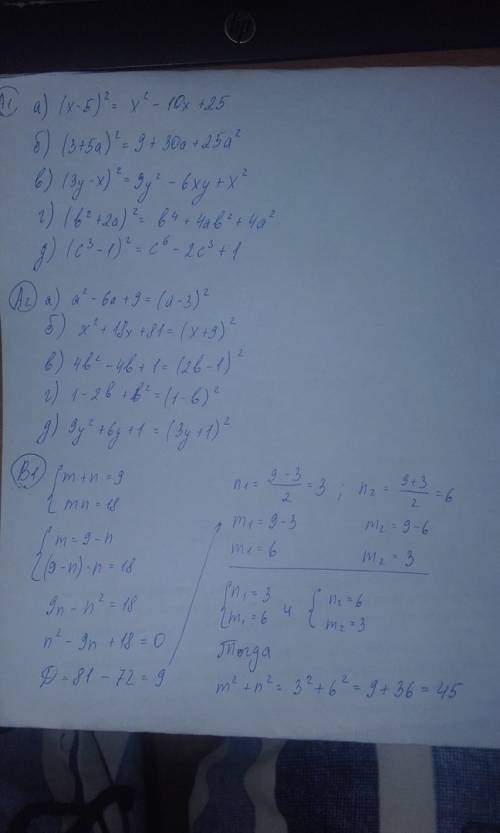 hp
А1 а) (x-5)² = x² - 10x + 25
б) (3+5a)² = 9 + 30a + 25a²
в) (3y-x)² = 9y² - 6xy + x²
г) (b²+2a)² = b⁴ + 4ab² + 4a²
д) (c³-1)² = c⁶ - 2c³ + 1
А2 а) a² - 6a + 9 = (a-3)²
б) x² + 18x + 81 = (x+9)²
в) 4b² - 4b + 1 = (2b-1)²
г) 1 - 2b + b² = (1-b)²
д) 9y² + 6y + 1 = (3y+1)²
В1 { m+n = 9
mn = 18
{ m = 9-n
(9-n)·n = 18
9n - n² = 18
n² - 9n + 18 = 0
D = 81 - 72 = 9
n₁ = (9-3)/2 = 3 ; n₂ = (9+3)/2 = 6
m₁ = 9-3 m₂ = 9-6
m₁ = 6 m₂ = 3
{ n₁ = 3 и { n₂ = 6
m₁ = 6 m₂ = 3
Тогда
m² + n² = 3² + 6² = 9 + 36 = 45